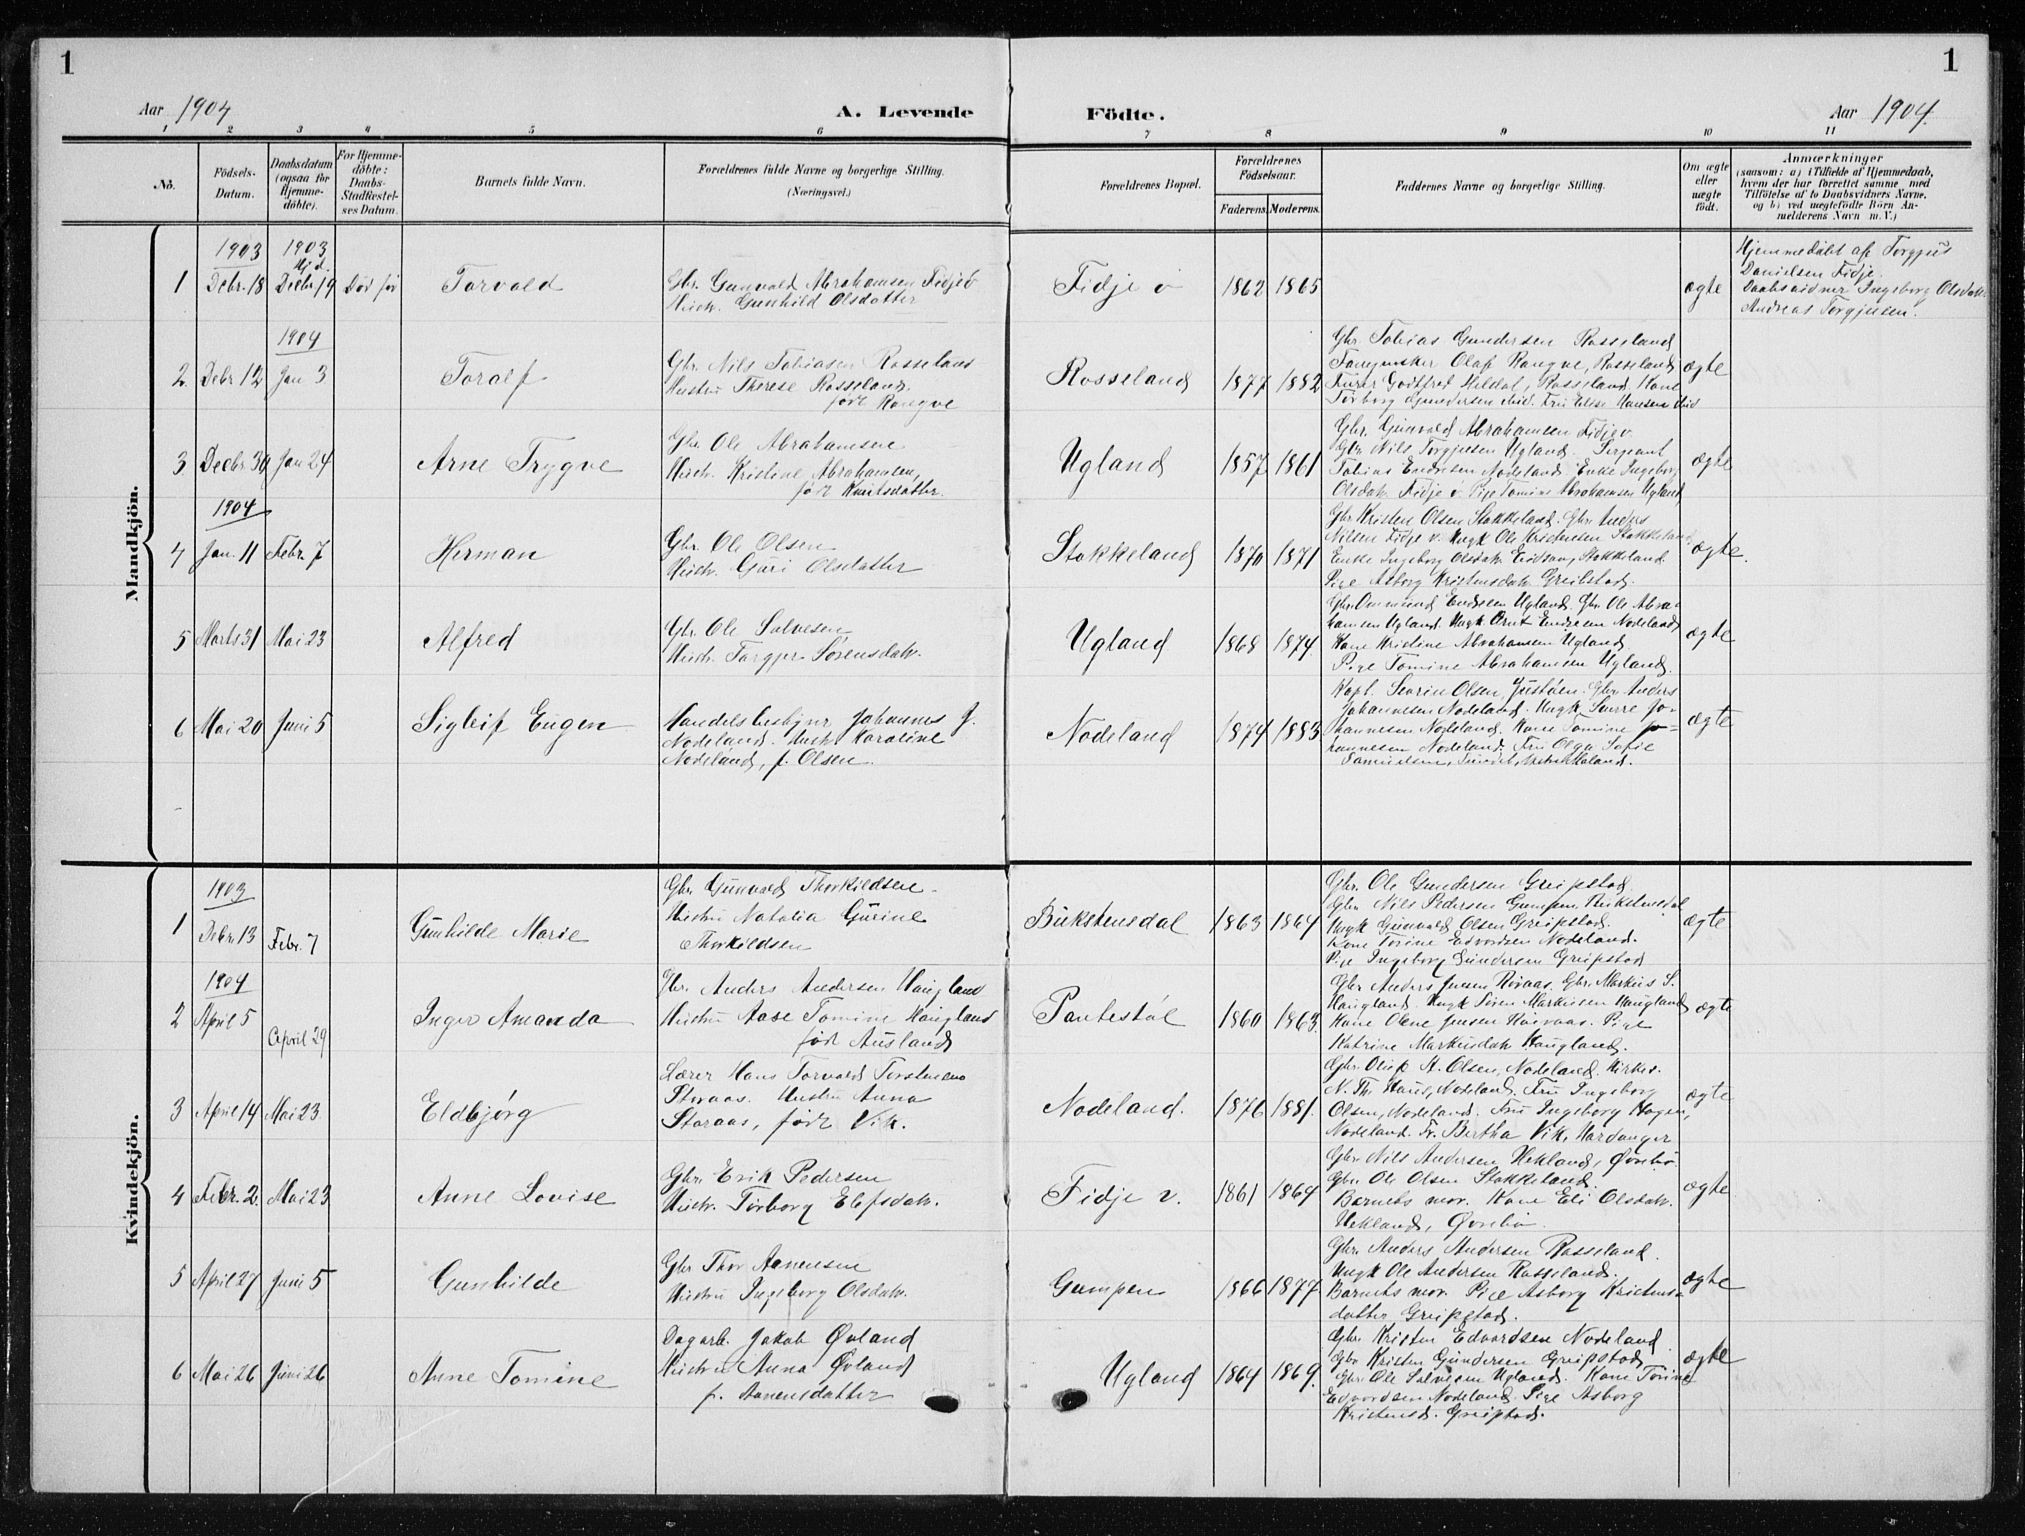 1
1
Aar 1904
A. Levende
Födte.
Aar 1904.
1 2 3 4 5 6 7 8 9 10 11
No.
Födsels-Datum.
Daabsdatum (ogsaa for Hjemme-döbte).
For Hjemme-döbte: Daabs-Stadfæstel-ses Datum.
Barnets fulde Navn.
Forældrenes fulde Navne og borgerlige Stilling.
(Næringsvei.)
Forældrenes Bopæl.
Forældrenes Födselsaar.
Faderens.
Moderens.
Faddernes Navne og borgerlige Stilling.
Om ægte eller uægte födt.
Anmærkninger
(saasom: a) i Tilfælde af Hjemmedaab,
hvem der har forrettet samme, med
Tilföielse af to Daabsvidners Navne.
og b) ved uægtefödte Börn An-
melderens Navn m. V.)
Mandkjön.
1903 1903
Hjd.
1 Debr. 18 Decbr. 19 Död før Torvald
Gbr. Gunvald Abrahamsen Fidje ø
Hustr. Gunhild Olsdatter
Fidje ø 1862 1865 ægte
Hjemmedøbt af Torgjus
Danielsen Fidje.
Daabsvidner Ingeborg Olsdatr
Andreas Torgjusen.
1904
2 Debr 12 Jan 3 Toralf
Gbr. Nils Tobiasen Rosseland
Hustru Therese Rosseland
født Rongve
Rosseland 1877 1882
Gbr. Tobias Gundersen Rosseland
Olaf Rongve, Rosseland
Godtfred Heldal, Rosseland Kone
Torborg Gundersen ibid. Fru Elise Hansen ibid
ægte
3 Decbr. 30 Jan 24 Arne Trygve
Gbr. Ole Abrahamsen
Hustr. Kristine Abrahamsen,
født Knutsdatter.
Ugland 1857 1861
Gbr. Gunvald Abrahamsen Fidje ø
Gbr. Nils Torgjusen Ugland. Sergeant
Tobias Endresen Nodeland Enke Ingeborg
Olsdatr. Fidje ø. Pige Tomine Abrahamsen Ugland
ægte
1904
4 Jan. 11 Febr. 7 Herman
Gbr. Ole Olsen
Hustr. Guri Olsdatter
Stokkeland 1870 1871
Gbr. Kristen Olsen Stokkeland. Gbr. Anders
Nilsen Fidje v. Ungk Ole Kristensen Stokkeland
Enke Ingeborg Olsdatr. Stokkeland.
Pige Asborg Kristensdatr. Greibstad.
ægte.
5 Marts 31 Mai 23 Alfred
Gbr. Ole Salvesen
Hustr. Torgjer Sørensdatr.
Ugland 1868 1874
Gbr. Ommund Endresen Ugland. Gbr. Ole Abra-
hamsen Ugland. Ungk Ornt Endresen Nodeland
Kone Kristine Abrahamsen Ugland
Pige Tomine Abrahamsen Ugland.
ægte
6 Mai 20 Juni 5 Sigleif Eugen
Handelsbestyrer Johannes J.
Nodeland. Hustr. Karoline
Nodeland, f. Olsen.
Nodeland 1874 1883
Kapt. Severin Olsen, Justøen. Gbr. Anders
Johannesen Nodeland. Ungk. Sverre Jo-
hannesen Nodeland. Kone Tomine Jo-
hannesen Nodeland Fru Olga Sofie
Samuelsen,
ægte
Kvindekjön.
1903
1 Debr. 13 Febr. 7 Gunhilde Marie
Gbr. Gunvald Thorkildsen.
Hustru Natalia Gurine
Thorkildsen
Birkstensdal 1863 1864
Gbr. Ole Gundersen Greipstad
Gbr. Nils Pedersen Gumpen, Birkstensdal
Ungk Gunvald Olsen Greipstad.
Kone Torine Edvardsen Nodeland.
Pige Ingeborg Gundersen Greipstad
ægte
1904
2 April 5 April 29 Inger Amanda
Gbr. Anders Andersen Haugland
Hustru Aase Tomine Haugland
født Ausland
Pantestøl 1860 1863.
Gbr. Anders Jensen Røiraas. Gbr. Markus S.
Haugland. Ungk Søren Markusen Haugland
Kone Olene Jensen Røiraas. Pige
Katrine Markusdatr. Haugland.
ægte
3 April 14 Mai 23. Eldbjørg
Lærer Hans Torvald Torstensen
Storaas. Hustru Anna
Storaas, født Vik.
Nodeland. 1876 1881.
Gbr. Oluf A. Olsen, Nodeland. Kirkes.
N. Th. Haus, Nodeland. Fru Ingeborg
Olsen, Nodeland. Fru Ingeborg Hagen,
Nodeland. Fr. Bertha Vik, Hardanger
ægte
4 Febr. 2. Mai 23 Anne Lovise
Gbr. Erik Pedersen
Hustr. Torborg Elefsdatr.
Fidje v. 1861 1864
Gbr. Nils Andersen Hekland, Øvrebø
Gbr. Ole Olsen Stokkeland.
Barnets mor. Kone Eli Olsdatr.
Hekland, Øvrebø.
ægte
5 April 27 Juni 5 Gunhilde
Gbr. Thor Aanensen
Hustru Ingeborg Olsdatr.
Gumpen 1866 1877.
Gbr. Anders Andersen Rosseland.
Ungk Ole Andersen Rosseland.
Barnets mor. Pige Asborg Kristens-
datter Greipstad.
ægte
6 Mai 26 Juni 26 Anne Tomine
Dagarb. Jakob Øvland
Hustru Anna Øvland
f. Aanensdatter
Ugland 1864 1869.
Gbr. Kristen Edvardsen Nodeland
Gbr. Kristen Gundersen Greipstad
Gbr. Ole Salvesen Ugland. Kone Torine
Edvardsen Nodeland. Pige Asborg
Kristensd. Greipstad.
ægte